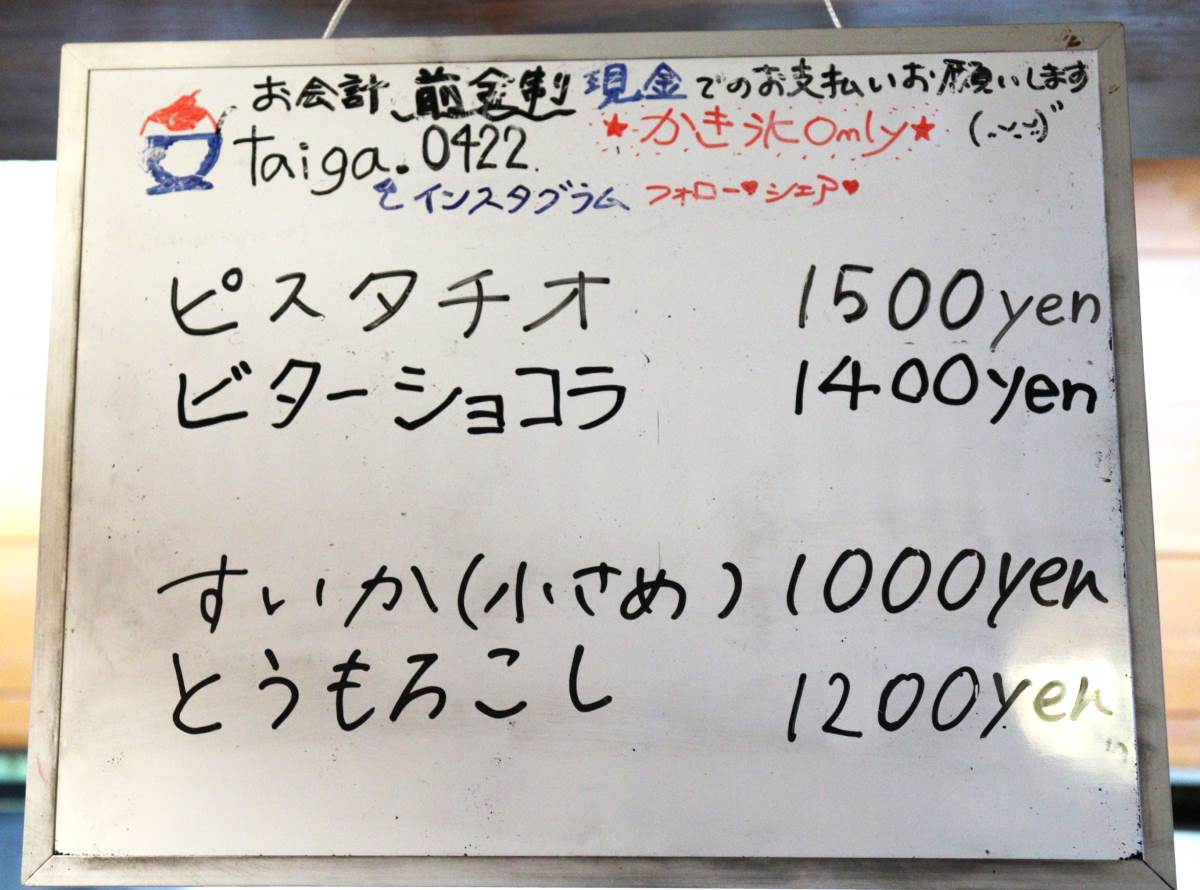 お会計 前金制 現金でのお支払いお願いします
taiga.0422 ★かき氷Only★
インスタグラム フォロー♥シェア♥
ピスタチオ 1500yen
ビターショコラ 1400yen
すいか(小さめ) 1000yen
とうもろこし 1200yen